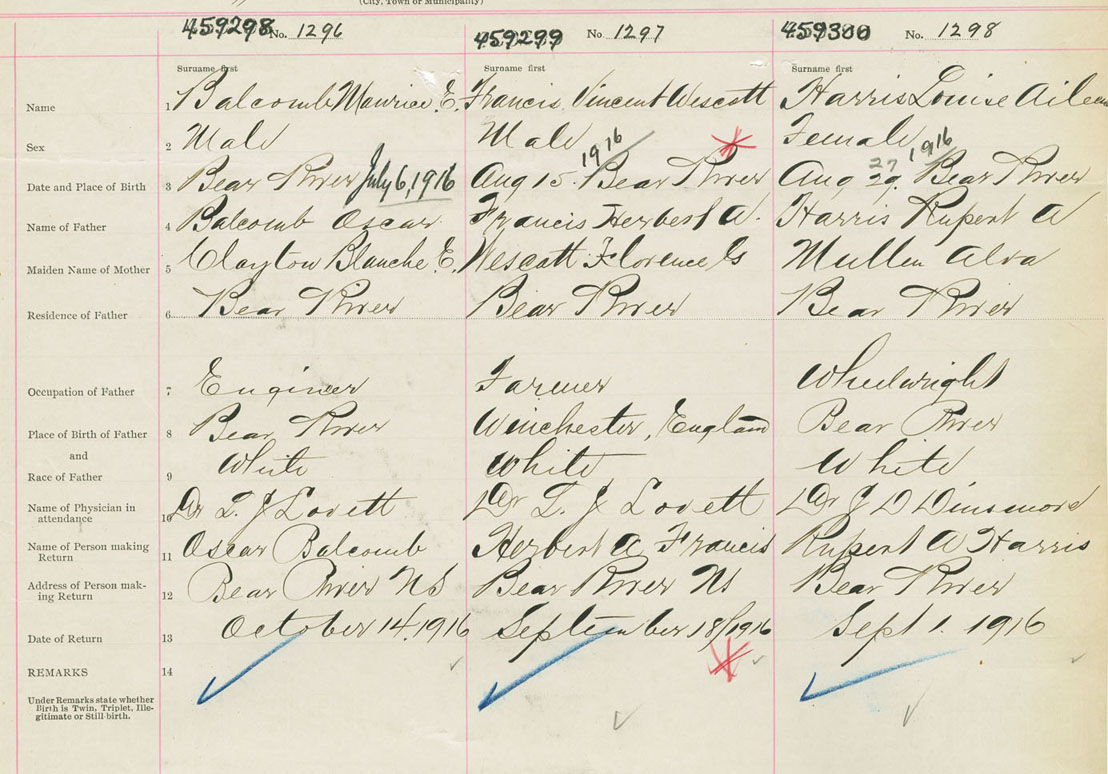 (City, Town or Municipality)
459298 No. 1296 459299 No 1297 459300 No. 1298
Surname first Surname first Surname first
Name 1 Balcomb Maurice E. Francis Vincent Wescott Harris Louise Aileen
Sex 2 Male Male Female
1916 27 1916
Date and Place of Birth 3 Bear River July 6, 1916 Aug 15. Bear River Aug 29. Bear River
Name of Father 4 Balcomb Oscar Francis Herbert A. Harris Rupert A
Maiden Name of Mother 5 Clayton Blanche E. Wescott Florence G Mullen Alva
Residence of Father 6 Bear River Bear River Bear River
Occupation of Father 7 Engineer Farmer Wheelwright
Place of Birth of Father 8 Bear River Winchester, England Bear River
and
Race of Father 9 White White White
Name of Physician in
attendance 10 Dr L. J Lovett Dr L. J Lovett Dr J D Dinsmore
Name of Person making
Return 11 Oscar Balcomb Herbert A Francis Rupert A Harris
Address of Person mak-
ing Return 12 Bear River NS Bear River Ns Bear River
Date of Return 13 October 14, 1916 September 18/1916 Sept 1. 1916
REMARKS 14
Under Remarks state whether
Birth is Twin, Triplet, Ille-
gitimate or Still-birth.